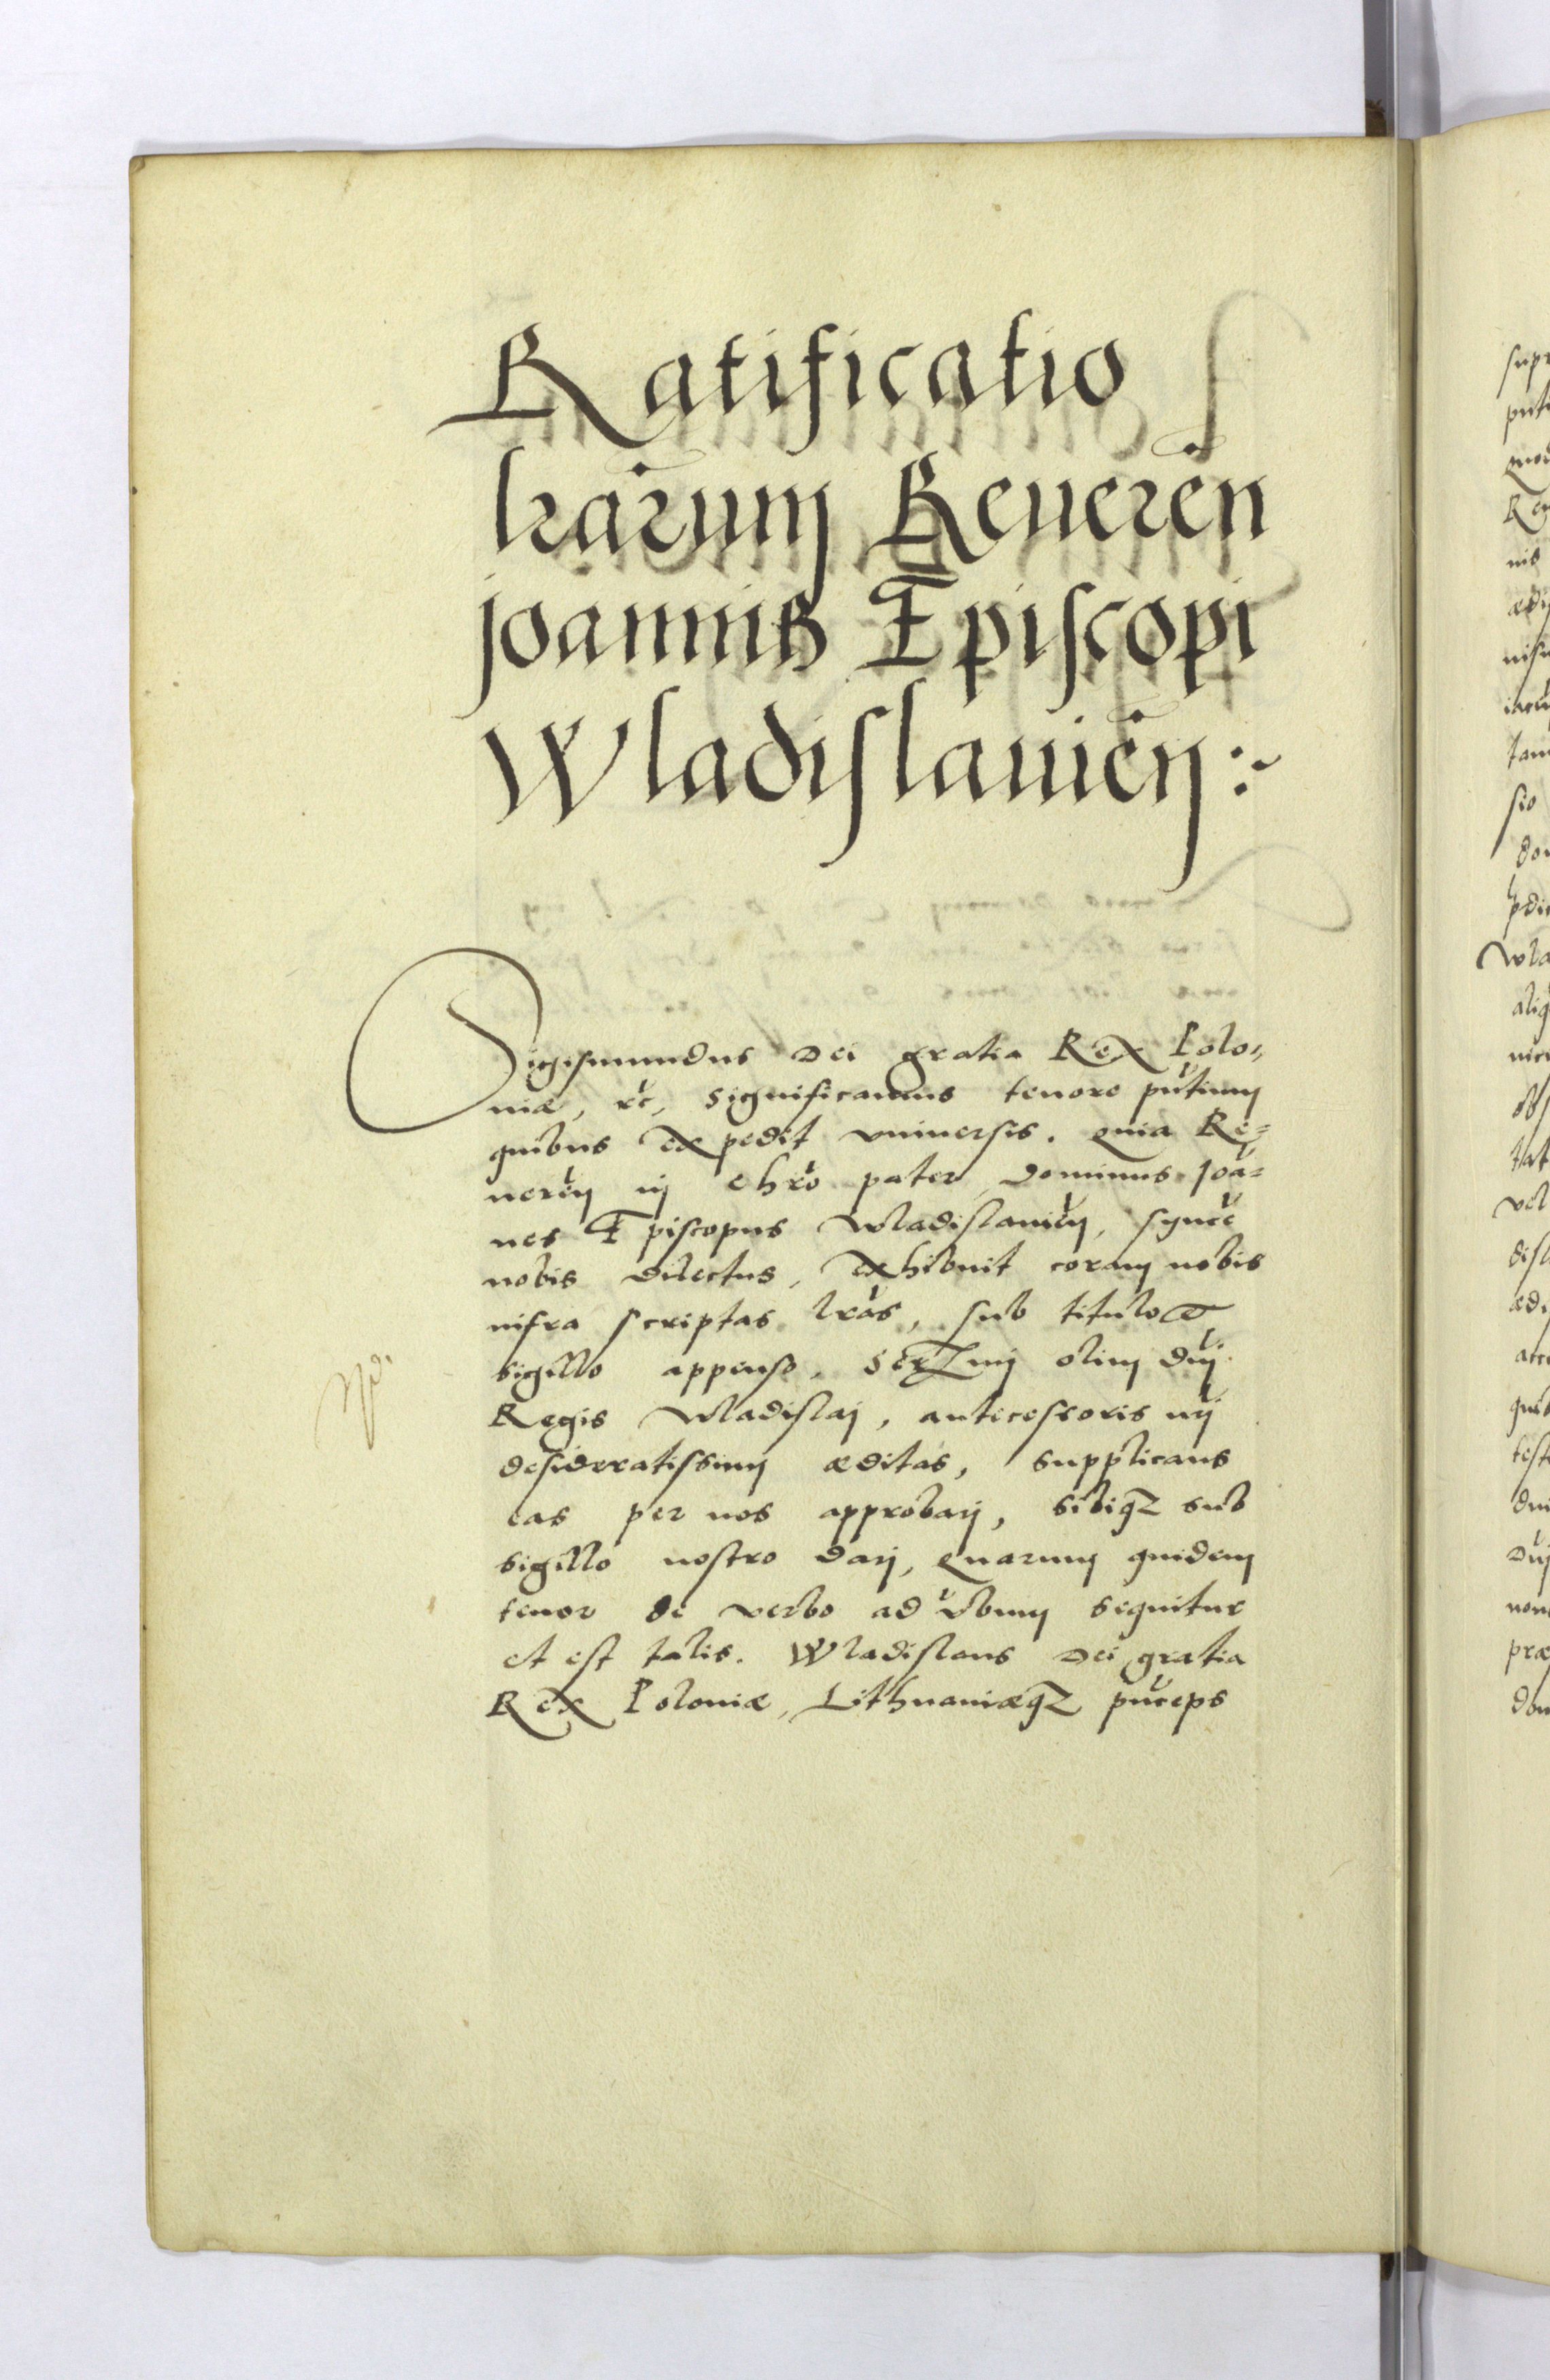 Ratificatio
lrarum Reueren
joannis Episcopi
Wladislauien:~
Sigismundus Dei gratia Rex Polo=
niæ, etc, Significamus tenore pntium
quibus expedit vniuersis. Quia Re=
ueren in Chro pater Dominus Joa=
nes Episcopus Wladislauien, synce
nobis dilectus, exhibuit coram nobis
infra scriptas lras, sub titulo et
sigillo appenso, Ser. mi olim dni
Regis Wladislai, antecessoris nri
desideratissimi æditas, supplicans
eas per nos approbari, sibiqz sub
sigillo nostro dari, Quarum quidem
tenor de verbo ad vbum sequitur
et est talis. Wladislaus Dei gratia
Rex Poloniæ, Lithuaniæqz pnceps